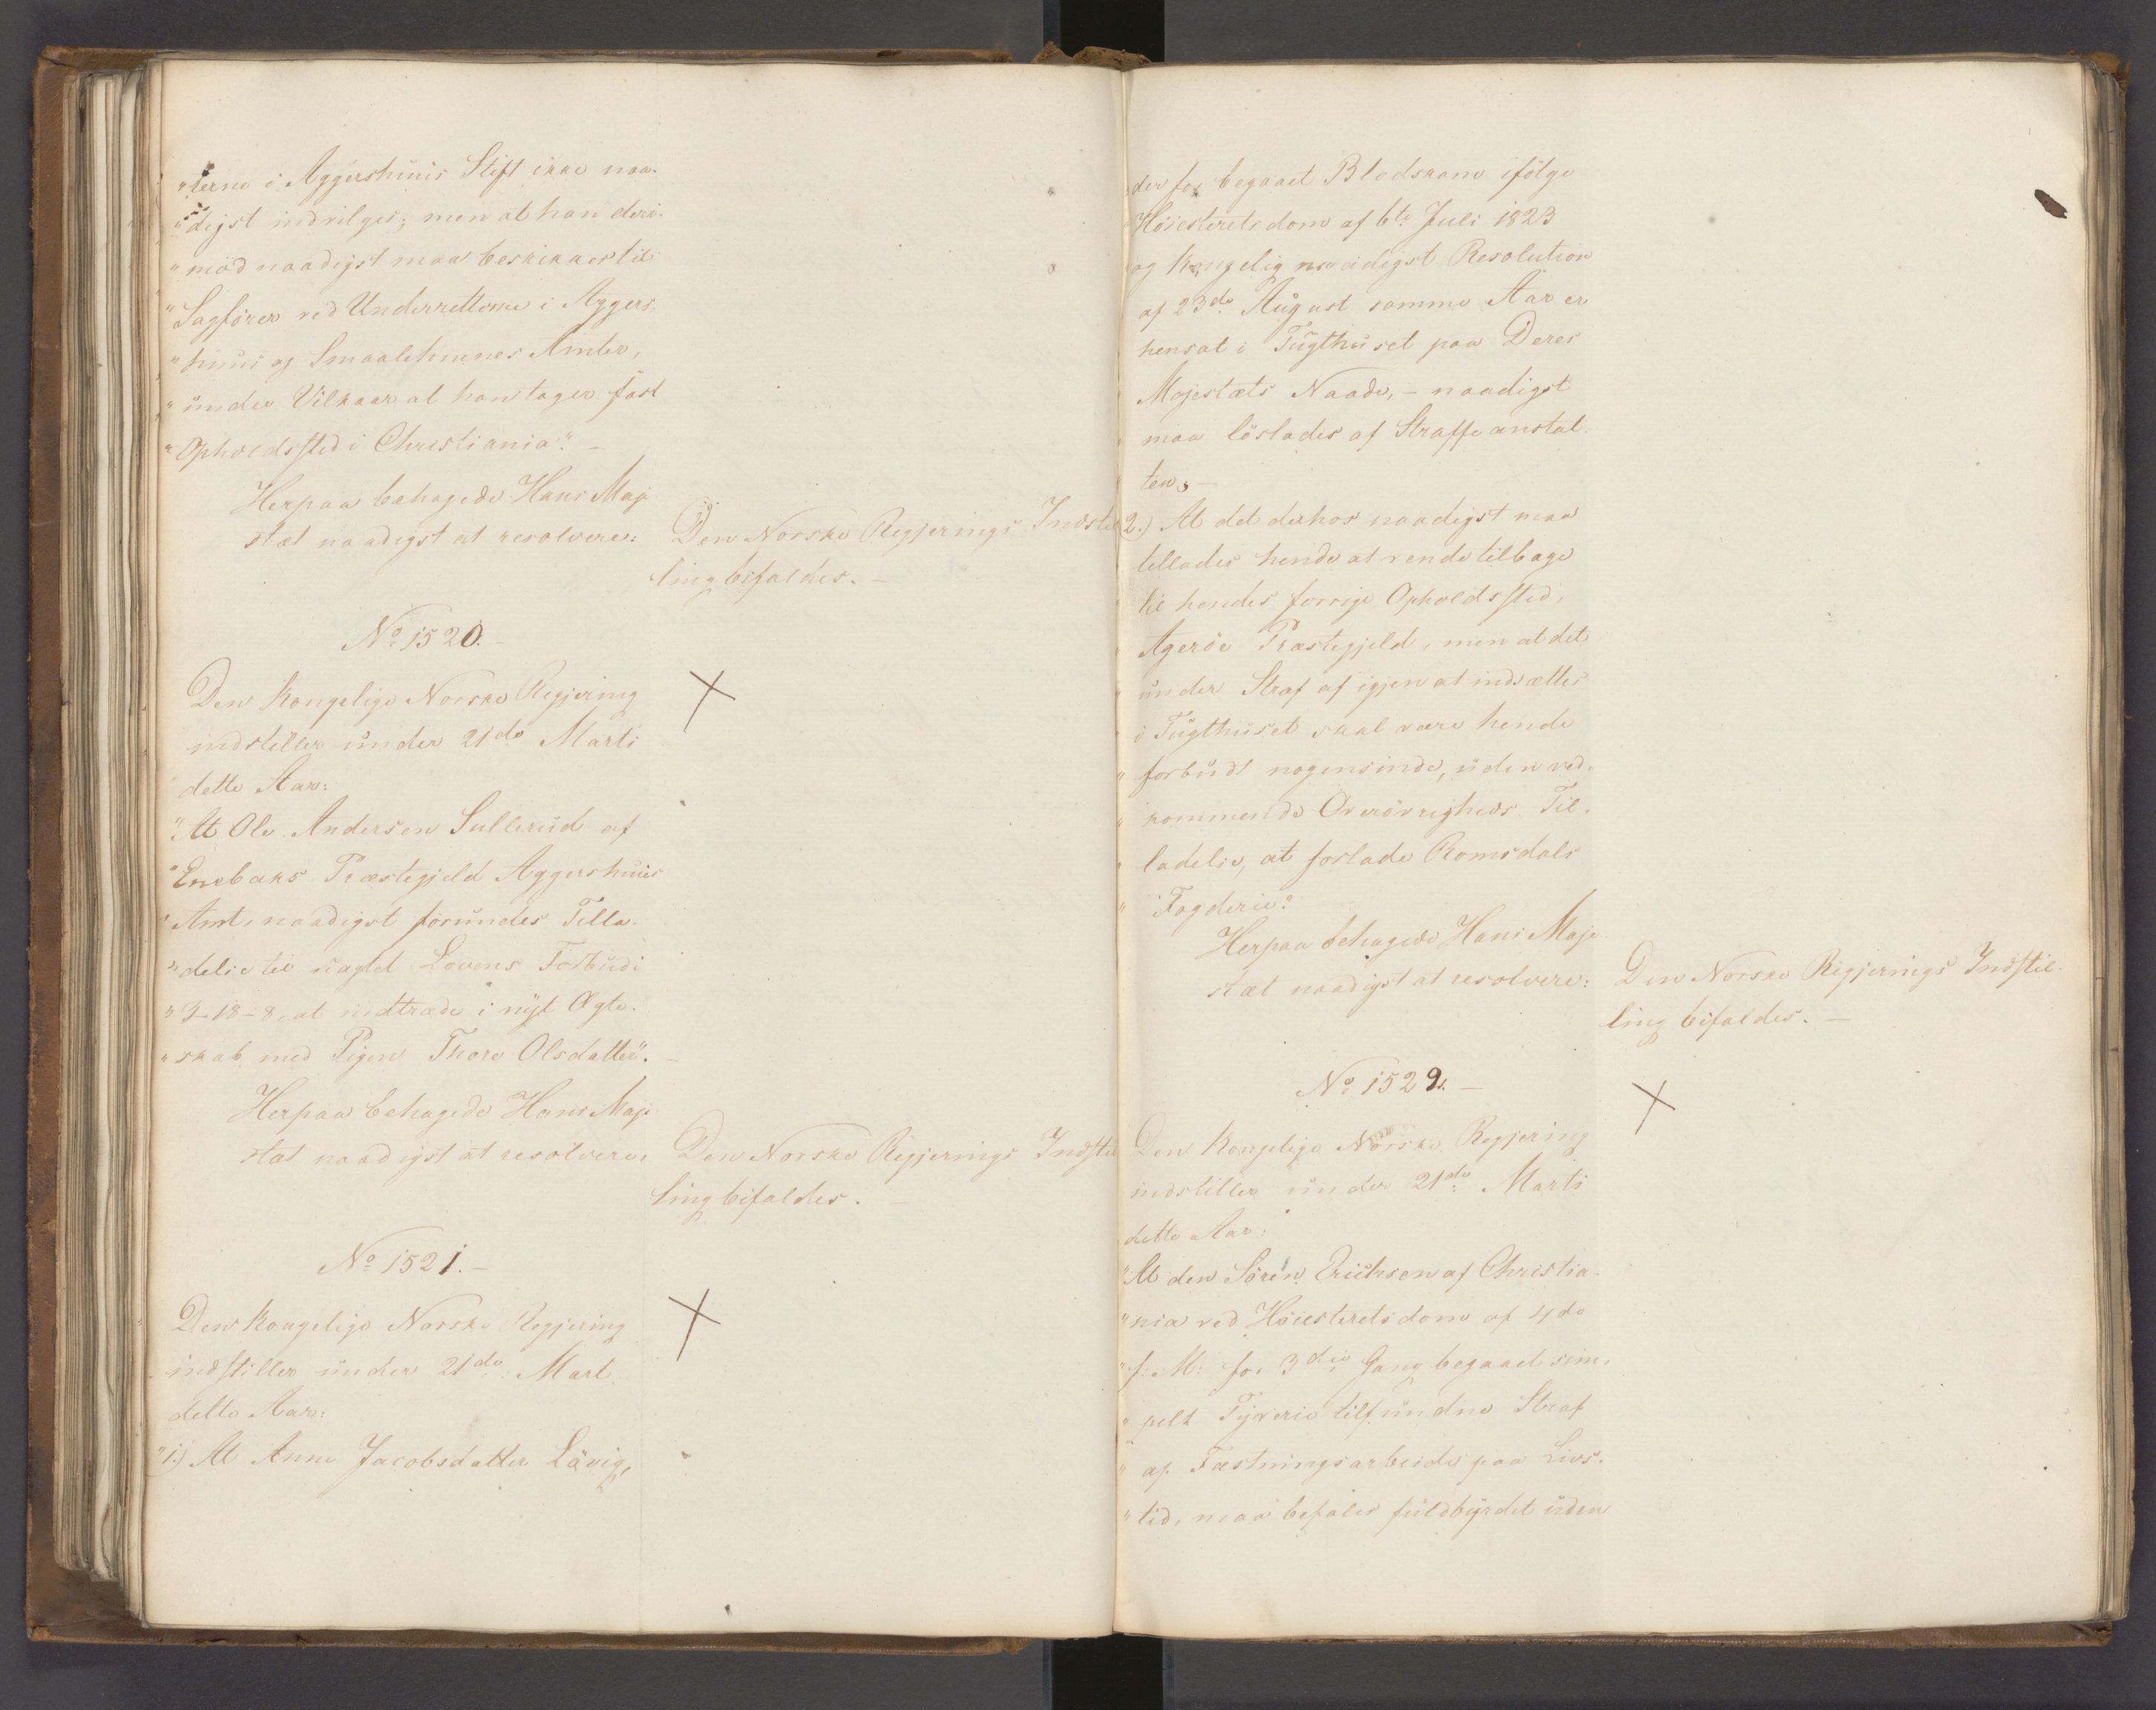 "terne i Aggershuus Stift ikke naa-
"digst indvilges; men at han deri-
"mod naadigst maa beskikkes til
"Sagfører ved Underretterne i Aggers-
"huus og Smaalehnenes Amter,
"under Vilkaar at han tager fast
"Opholdssted i Christiania". -
Herpaa behagede Hans Maje-
stæt naadigst at resolvere:
Den Norske Regjerings Indstil-
ling bifaldes. -
No 1520. -
Den Kongelige Norske Regjering
indstiller under 21de Marti
dette Aar:
"At Ole Andersen Sullerud af
"Enebaks Præstegjeld Aggershuus
"Amt, naadigst forundes Tilla-
"delse til uagtet Lovens Forbud i
"3-18-8, at indtræde i nyt Ægte-
"skab med Pigen Thore Olsdatter". -
Herpaa behagede Hans Maje-
stæt naadigst at resolvere,
Den Norske Regjerings Indstil-
ling bifaldes. -
No 1521. -
Den Kongelige Norske Regjering
indstiller under 21de Mart
dette Aar:
"1.) At Anne Jacobsdatter Lövig,
"der for begaaet Blodskam ifölge
"Höiesteretsdom af 6te Juli 1823
og Kongelig naadigst Resolution
af 23de August samme Aar er
hensat i Tugthuset paa Deres
Majestæts Naade, - naadigst
maa löslades af Straffeanstal-
ten, -
2.) At det derhos naadigst maa
tillades hende at vende tilbage
til hendes forrige Opholdssted,
Ageröe Præstegjeld, men at det
under Straf af igjen at indsættes
i Tugthuset skal være hende
" forbudt nogensinde, uden ved-
" kommende Överövrigheds Til-
" ladelse, at forlade Romsdals
" Fogderie".
Herpaa behagede Hans Maje-
stæt naadigst at resolvere:
Den Norske Regjerings Indstil-
ling bifaldes. -
No 1529. -
Den Kongelige Norske Regjering
indstiller under 21de Marti
dette Aar:
"At den Sören Erichsen af Christia-
"nia ved Höiesteretsdom af 4de
"f: M: for 3die Gang begaaet sim-
" pelt Tyverie tilfundne Straf
" af Fæstningsarbeide paa Livs-
" tid, maa befales fuldbyrdet uden